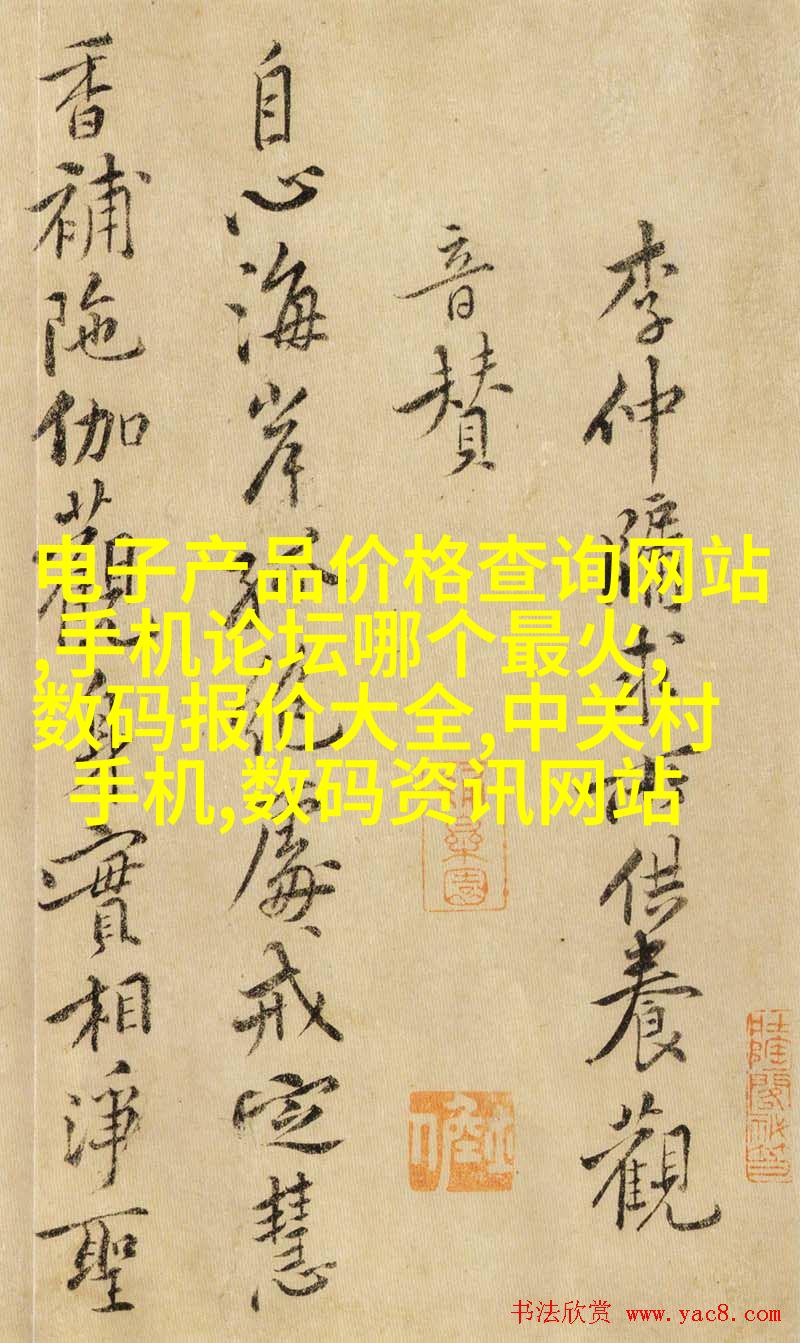 李仲牖求 供養觀
音賛
自心海岸孤絶處戒定慧
香補陁伽觀身實相淨聖
电子产品价格查询网站
,手机论坛哪个最火,
数码报价大全,中关村
手机,数码资讯网站
书法欣赏 www.yac8.com